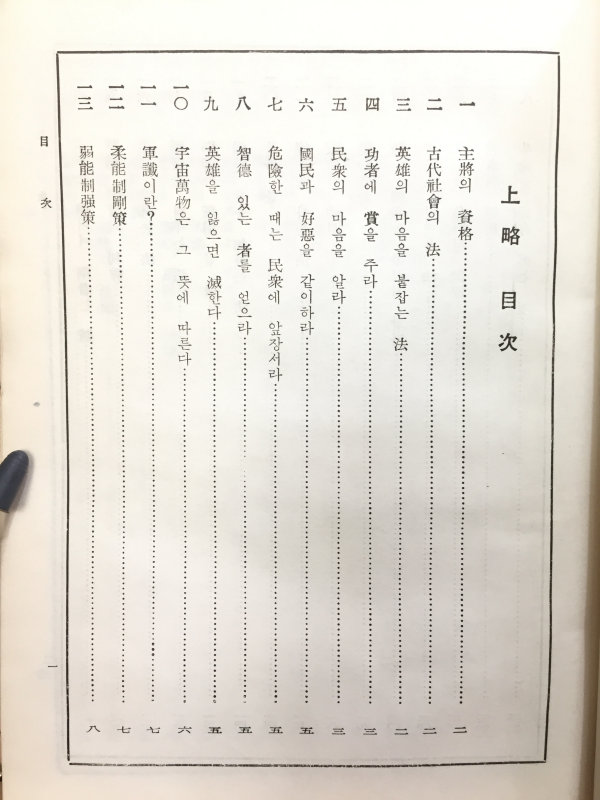 上略 目次
一 主將의 資格 二
二 古代社會의 法 二
三 英雄의 마음을 붙잡는 法 二
四 功者에 賞을 주라 三
五 民衆의 마음을 알라 三
六 國民과 好惡을 같이하라 五
七 危險한 때는 民衆에 앞장서라 五
八 智德 있는 者를 얻으라 五
九 英雄을 잃으면 滅한다 五
一〇 宇宙萬物은 그 뜻에 따른다 六
一一 軍讖이란? 七
一二 柔能制剛策 七
一三 弱能制强策 八
目次
一